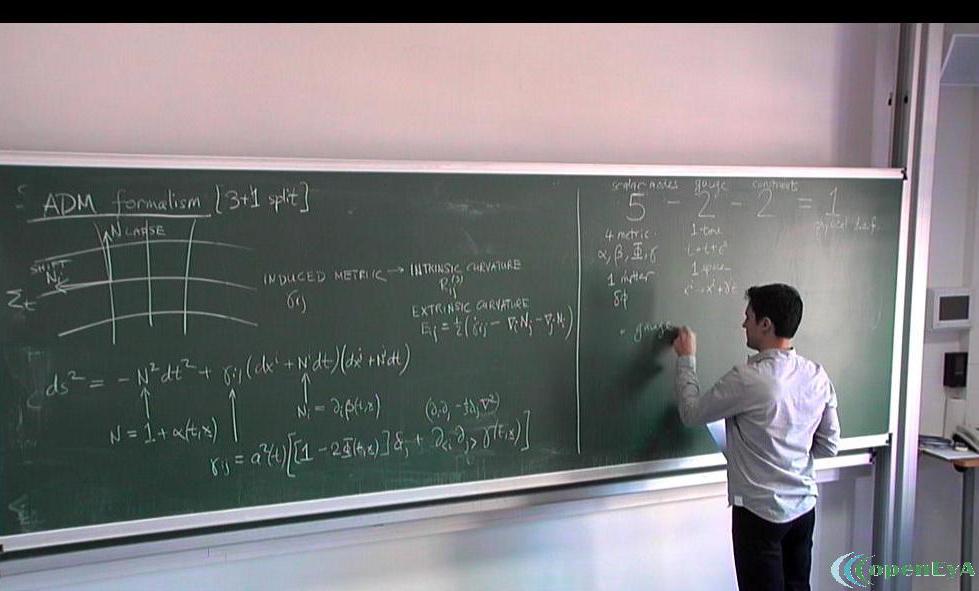 ADM formalism [3+1 split]
N LAPSE
SHIFT
Nⁱ
Σₜ
INDUCED METRIC → INTRINSIC CURVATURE
γᵢⱼ
Rᵢⱼ⁽³⁾
EXTRINSIC CURVATURE
Eᵢⱼ = ½(γ̇ᵢⱼ - ∇ᵢNⱼ - ∇ⱼNᵢ)
ds² = -N²dt² + γᵢⱼ(dxⁱ + Nⁱdt)(dxʲ + Nʲdt)
N = 1 + α(t,x)
Nᵢ = ∂ᵢβ(t,x)
(∂ᵢ∂ⱼ - ⅓δᵢⱼ∇²)
γᵢⱼ = a²(t)[[1 - 2Φ(t,x)]δᵢⱼ + ∂<ᵢ∂ⱼ>γ(t,x)]
scalar modes gauge constraints
5 - 2 - 2 = 1
physical d.o.f.
4 metric
α, β, Φ, γ
1 matter
δφ
1 time
1 space
• gauge
openEyA